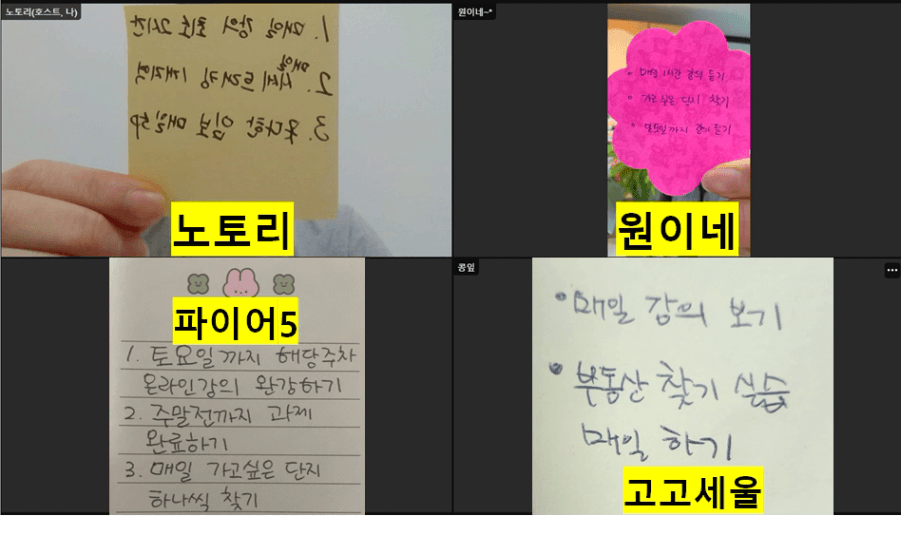 노토리(호스트, 나)
1. 매일 강의 최소 2시간
매일
2. 시세트래킹 1개지역
3. 못다한 임보 매일 5p
노토리
원이네~*
• 매일 1시간 강의 듣기
찾기
• 일요일까지 강의 듣기
원이네
파이어5
1. 토요일까지 해당주차
온라인강의 완강하기
2. 주말전까지 과제
완료하기
3. 매일 가고싶은 단지
하나씩 찾기
콩잎
• 매일 강의 보기
• 부동산 찾기 실습
매일 하기
고고세울